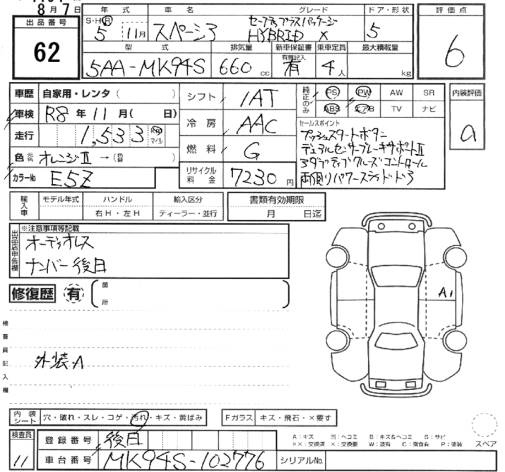 8月7日
出品番号 62
年式 車名 グレード ドア・形状
S・H・R 5年 11月 スペーシア HYBRID X 5
型式 排気量 新車保証書 乗車定員 最大積載量
有無記入
5AA-MK94S 660 cc 有 4人 kg
評価点 6
車歴 自家用・レンタ ( )
車検 R8年 11月 ( )
走行 1,533 km マイル
色 オレンジII → ( )
カラーNo E5Z
シフト IAT
冷房 AAC
燃料 G
リサイクル料金 7230円
純正のみ PS PW AW SR
ABS エアB TV ナビ
内装評価 a
セールスポイント
プッシュスタートボタン
デュアルセンサーブレーキサポートII
アダプティブクルーズコントロール
両側パワースライドドア
輸入車 モデル年式 ハンドル 輸入区分
右H・左H ディーラー・並行
書類有効期限
月 日迄
※注意事項等記載
オーディオレス
ナンバー後日
修復歴 有 箇所
検査員記入欄
外装A
A1
内装シート 穴・破れ・スレ・コゲ・汚れ・キズ・黄ばみ
Fガラス キズ・飛石・×要す
スペア
検査員 11
登録番号 後日
車台番号 MK94S-102776
シリアルNo.
A：キズ U：ヘコミ B：キズ&ヘコミ S：サビ
××：交換済 ×：交換要 W：波有 C：腐食有 P：塗装